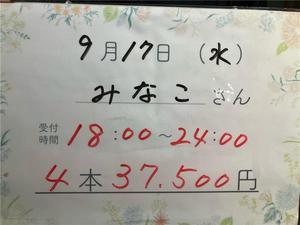 9月17日（水）
みなこさん
受付時間 18:00～24:00
4本 37.500円